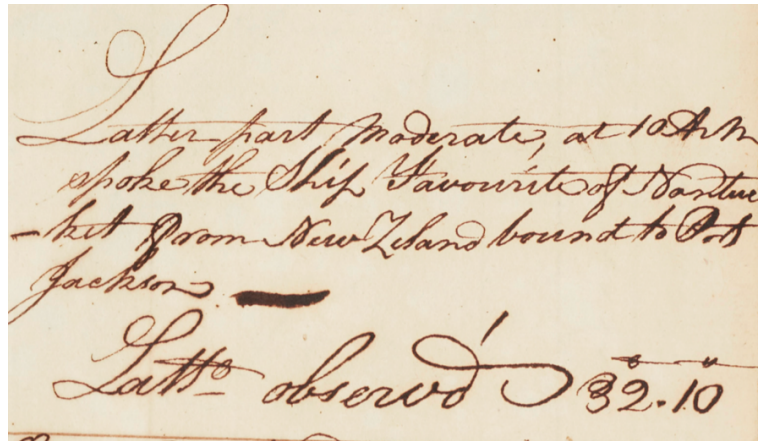 Latter part Moderate, at 10 AM
spoke the Ship Favourite of Nantuc
-ket from New Zeland bound to Port
Jackson
Latt^e observ'd 32.10